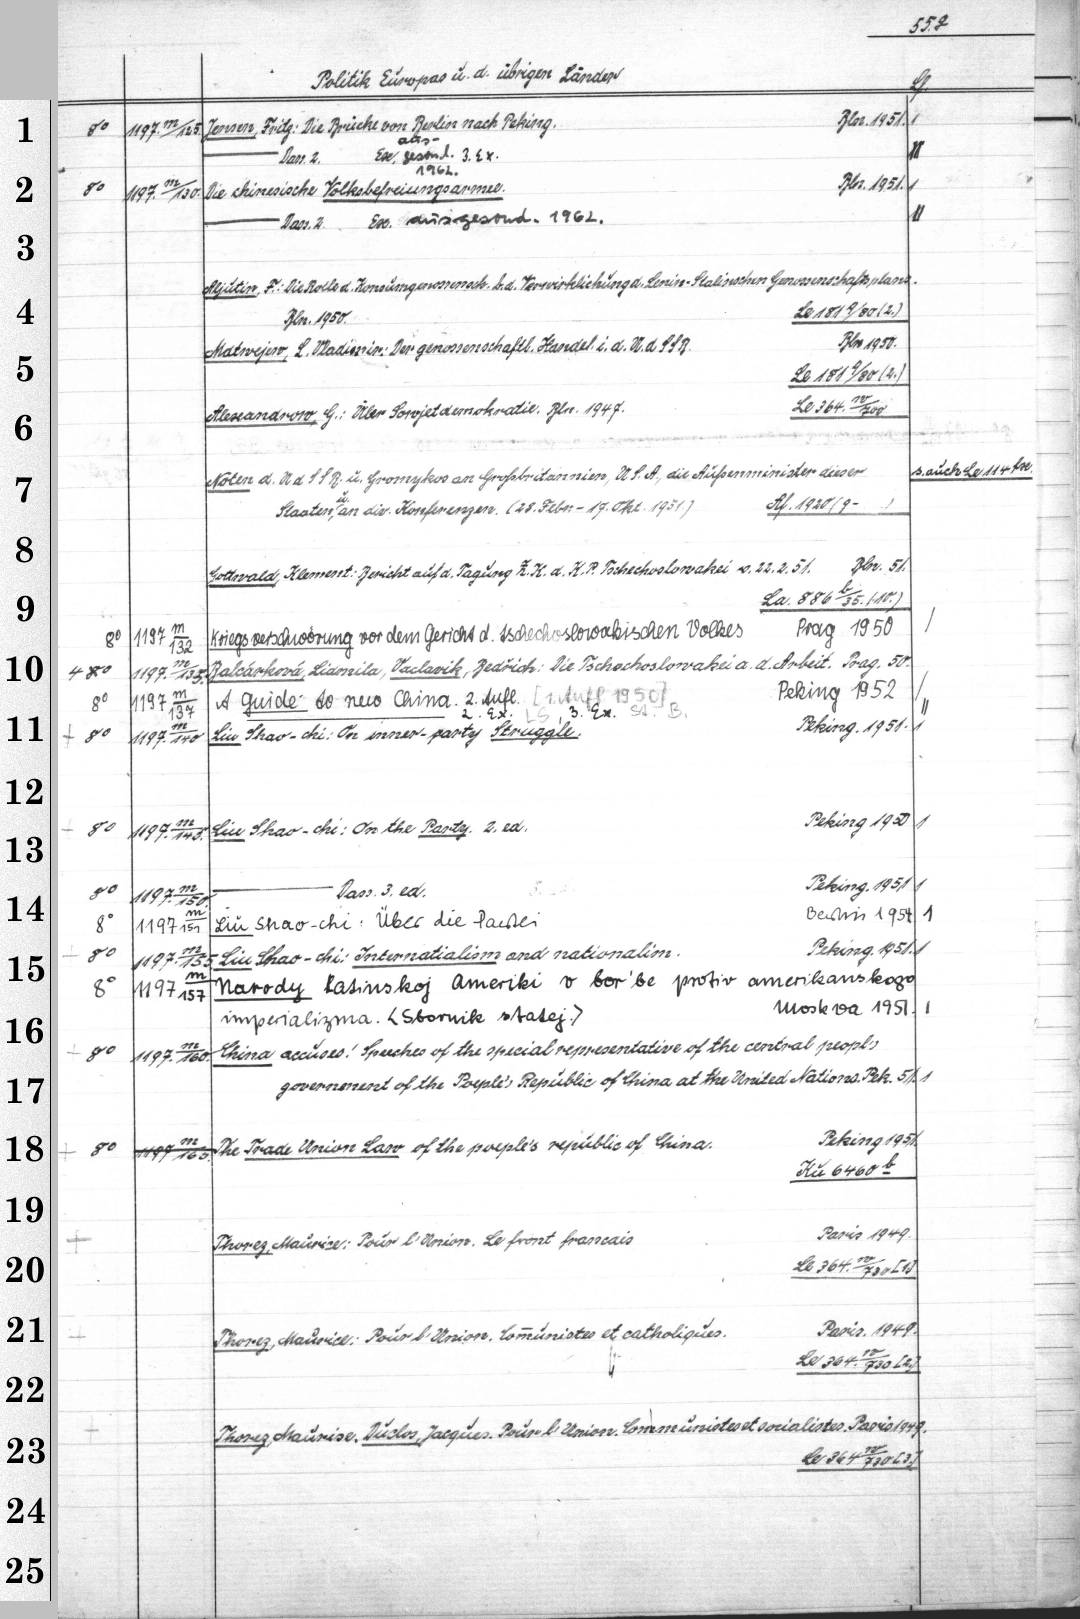 552
Politik Europas u. d. übrigen Länder
Lg.
1 8° 1197. m/125. Jensen, Fritz: Die Brücke von Berlin nach Peking. Bln. 1951. 1
aus-
——— Dass. 2. Ex. gesond. 3. Ex. II
1962.
2 8° 1197. m/130. Die chinesische Volksbefreiungsarmee. Bln. 1951. 1
——— Dass. 2. Ex. ausgesond. 1962. II
3
Aljutin, F.: Die Rolle d. Konsumgenossensch. b. d. Verwirklichung d. Lenin-Stalinschen Genossenschaftsplans.
4 Bln. 1950. Le 181 9/80 (2.)
Matwejew, L. Wladimir: Der genossenschaftl. Handel i. d. UdSSR. Bln 1950.
5 Le 181 9/80 (2.)
Alexandrow, G.: Über Sowjetdemokratie. Bln. 1947. Le 364. w/700
6
Noten d. UdSSR. u. Gromykos an Großbritannien, U.S.A., die Außenminister dieser s. auch Le 114
7 Staaten, u. an div. Konferenzen. (28. Febr. - 17. Okt. 1951) Af. 1920 (9- )
8
Gottwald, Klement: Bericht auf d. Tagung Z.K. d. K.P. Tschechoslowakei v. 22.2.51. Bln. 51.
9 La. 886 b/35. (10.)
8° 1197 m/132 Kriegsverschwörung vor dem Gericht d. tschechoslowakischen Volkes Prag 1950 /
10 4° 8° 1197. m/135. Balcárková, Liamila, Vaclavik, Bedřich: Die Tschechoslowakei a. d. Arbeit. Prag. 50.
8° 1197 m/137 A Guide to new China. 2. Aufl. [1. Aufl 1950] Peking 1952 /
2. Ex. LS, 3. Ex. St. B. II
11 + 8° 1197. m/140 Liu Shao-chi: On inner-party Struggle. Peking. 1951. 1
12
8° 1197. m/145. Liu Shao-chi: On the Party. 2. ed. Peking 1950 1
13
8° 1197. m/150. ——— Dass. 3. ed. Peking. 1951 1
14 8° 1197 m/151 Liu Shao-chi: Über die Partei Berlin 1954 1
8° 1197. m/155 Liu Shao-chi: Internatialism and nationalim. Peking. 1951. 1
15 8° 1197 m/157 Narody Latinskoj Ameriki v bor'be protiv amerikanskogo
imperializma. <Sbornik statej.> Moskva 1951. 1
16 8° 1197. m/160. China accuses! Speeches of the special representative of the central peopls
17 governenent of the Poeple's Republic of China at the United Nations. Pek. 51. 1
18 + 8° 1197 m/165. The Trade Union Law of the poeple's republic of China. Peking 1951.
Ku 6460 b
19
+ Thorez, Maurice: Pour l'Union. Le front francais Paris 1949.
20 Le 364. w/730 [1]
21 + Thorez, Maurice: Pour l'Union. Com̄unistes et catholiques. Paris. 1949.
Le 364. w/730 [2]
22
+ Thorez, Maurise. Duclos, Jacques. Pour l'Union. Communistes et socialistes. Paris 1949.
23 Le 364 w/730 [3]
24
25